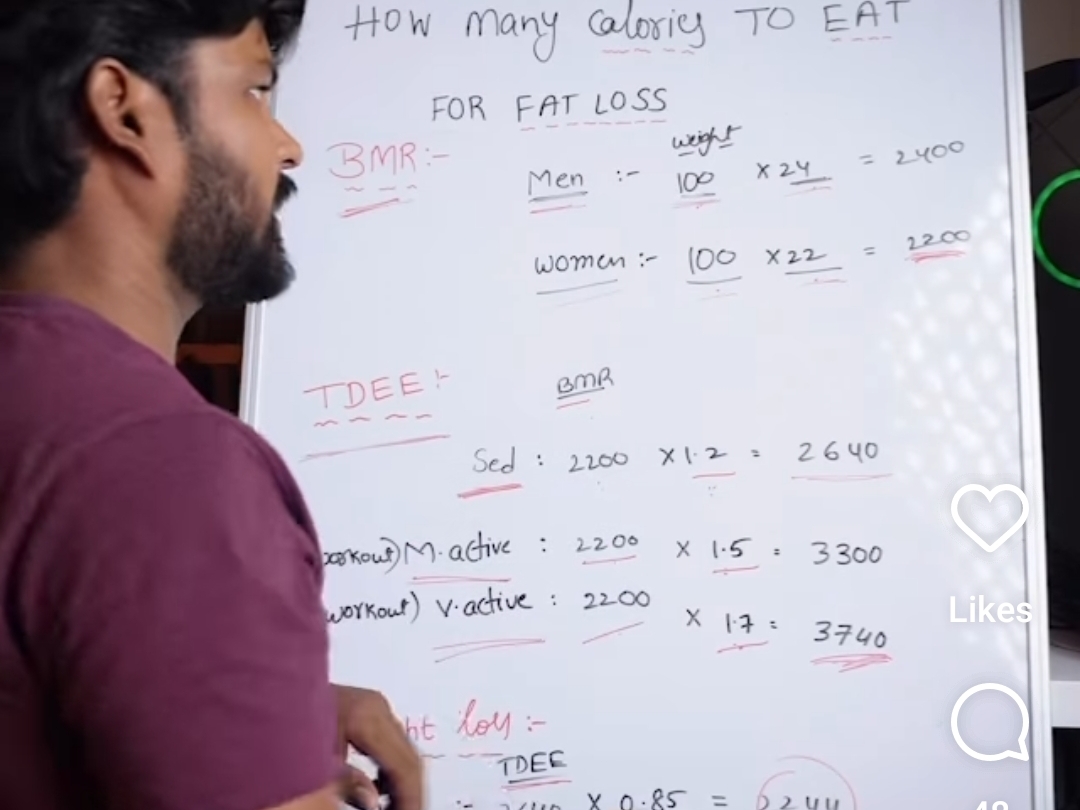 How many calories TO EAT
FOR FAT LOSS
BMR:-
weight
Men :- 100 x 24 = 2400
women :- 100 x 22 = 2200
TDEE:-
BMR
Sed : 2200 x 1.2 = 2640
M.active : 2200 x 1.5 = 3300
workout) V.active : 2200 x 1.7 = 3740
loss :-
TDEE
x 0.85 = 2244
Likes